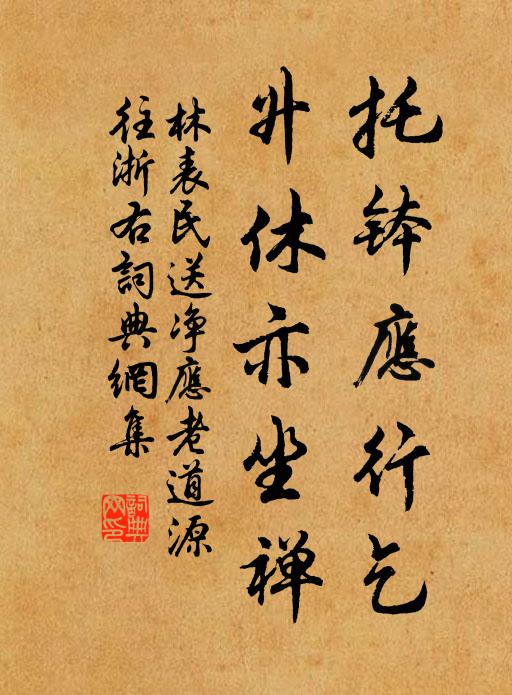 托鉢應行乞
升休亦坐禅
林表民送净應老道源
往浙右詞典網集
詞典
網印